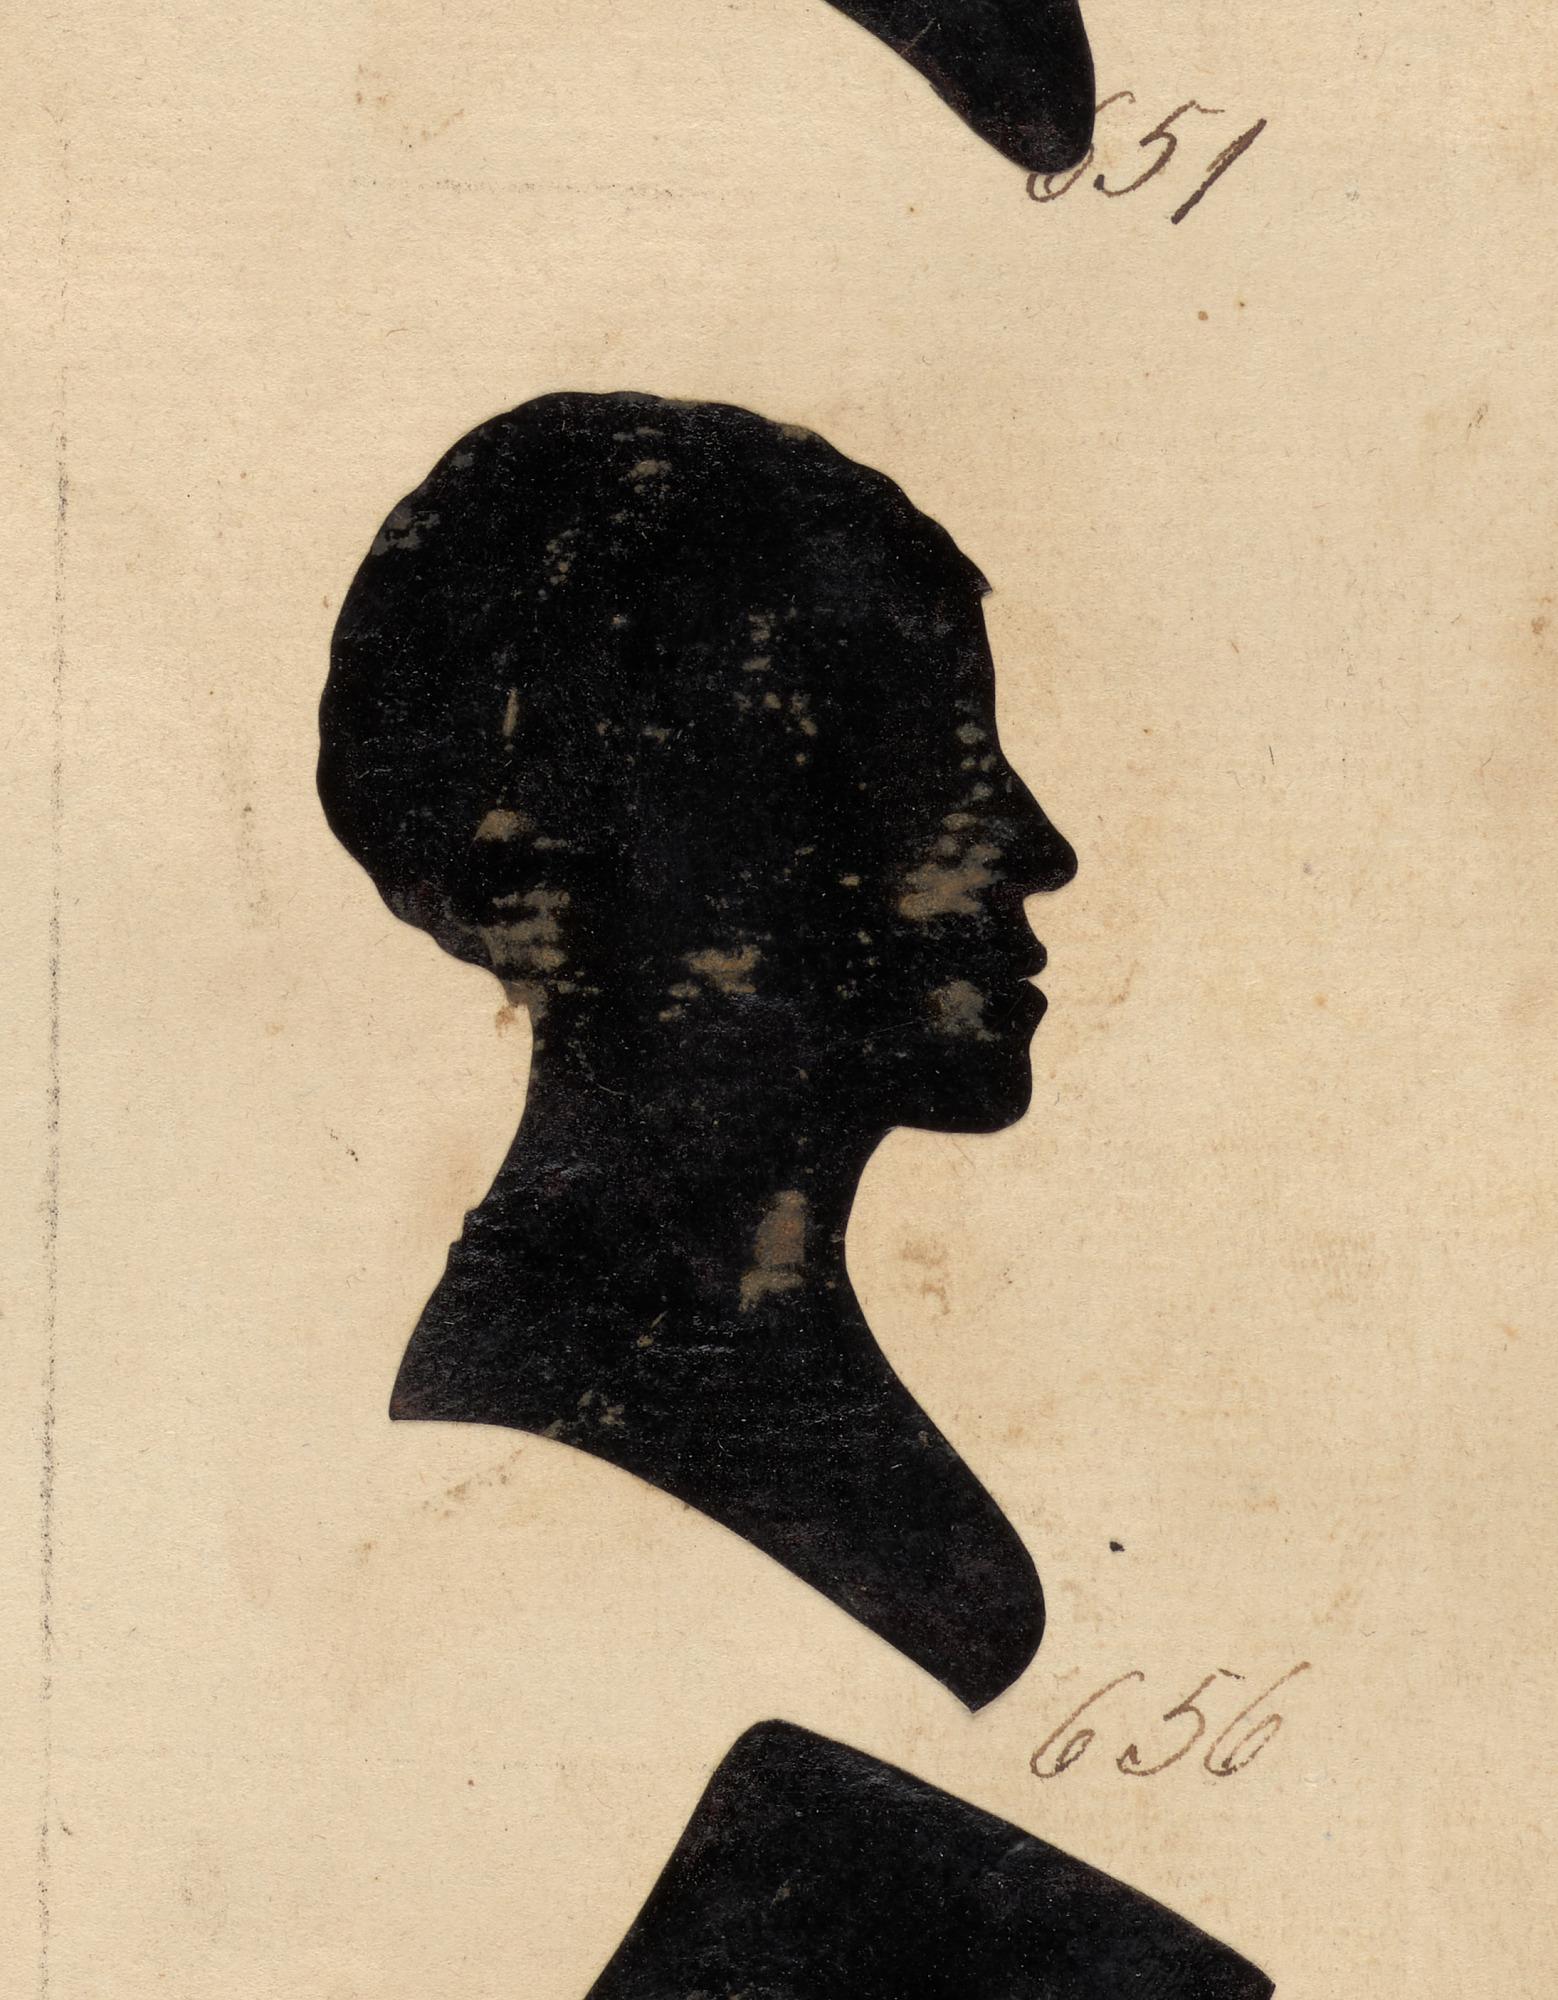 651
656